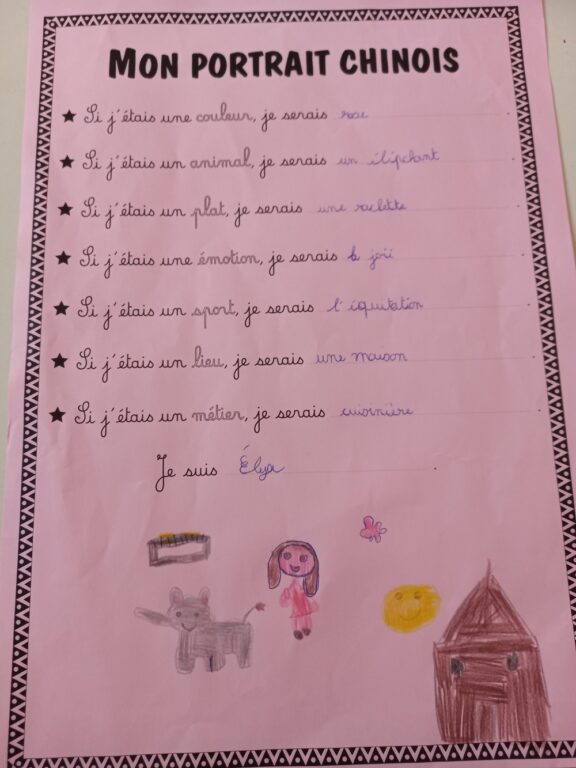 MON PORTRAIT CHINOIS
★ Si j'étais une couleur, je serais rose
★ Si j'étais un animal, je serais un éléphant
★ Si j'étais un plat, je serais une raclette
★ Si j'étais une émotion, je serais la joie
★ Si j'étais un sport, je serais l'équitation
★ Si j'étais un lieu, je serais une maison
★ Si j'étais un métier, je serais cuisinière
Je suis Élya